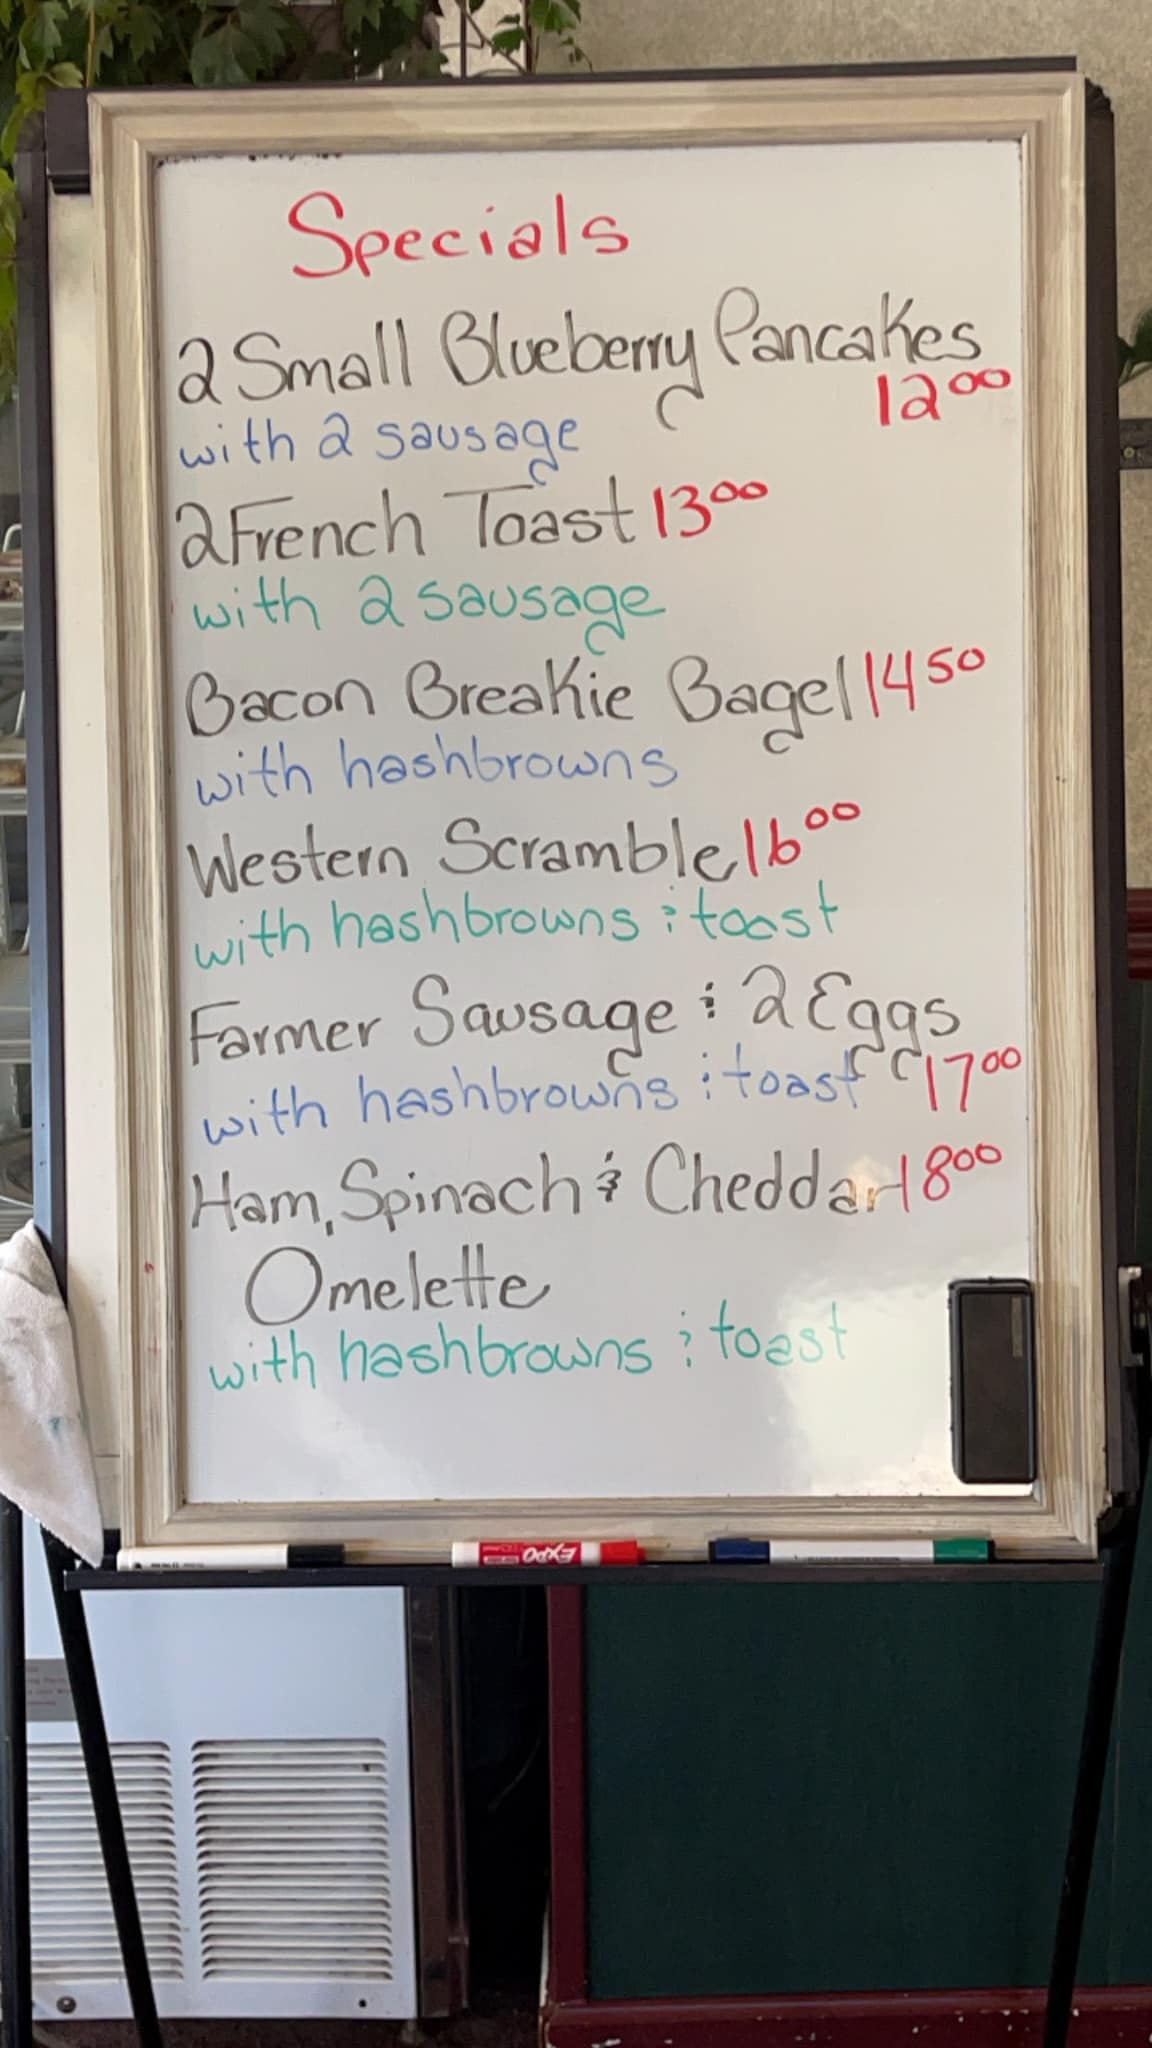 Specials
2 Small Blueberry Pancakes
12⁰⁰
with 2 sausage
2 French Toast 13⁰⁰
with 2 sausage
Bacon Breakie Bagel 14⁵⁰
with hashbrowns
Western Scramble 16⁰⁰
with hashbrowns & toast
Farmer Sausage & 2 Eggs
with hashbrowns & toast 17⁰⁰
Ham, Spinach & Cheddar 18⁰⁰
Omelette
with hashbrowns & toast
EXPO